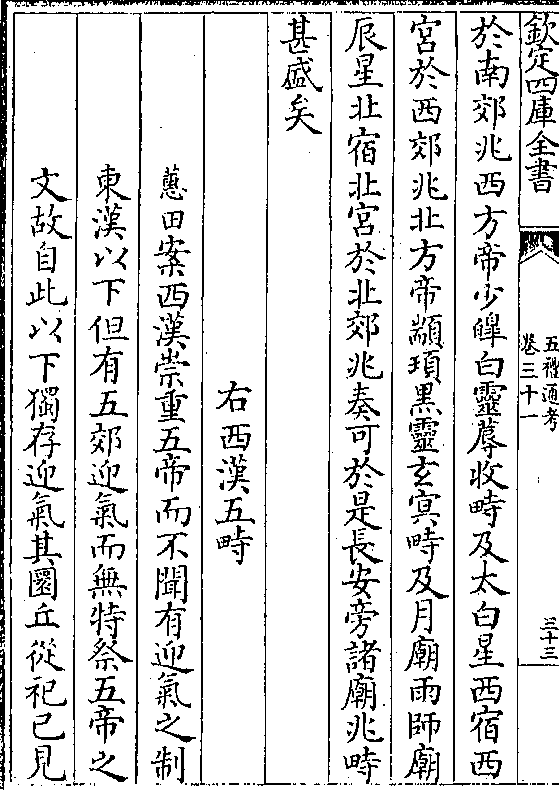 欽定四庫全書
五禮通考
卷三十一
三十三
於南郊兆西方帝少皥白靈蓐收畤及太白星西宿西
宮於西郊兆北方帝顓頊黑靈玄冥畤及月廟雨師廟
辰星北宿北宮於北郊兆奏可於是長安旁諸廟兆畤
甚盛矣
右西漢五畤
蕙田案西漢崇重五帝而不聞有迎氣之制
東漢以下但有五郊迎氣而無特祭五帝之
文故自此以下獨存迎氣其圜丘從祀已見